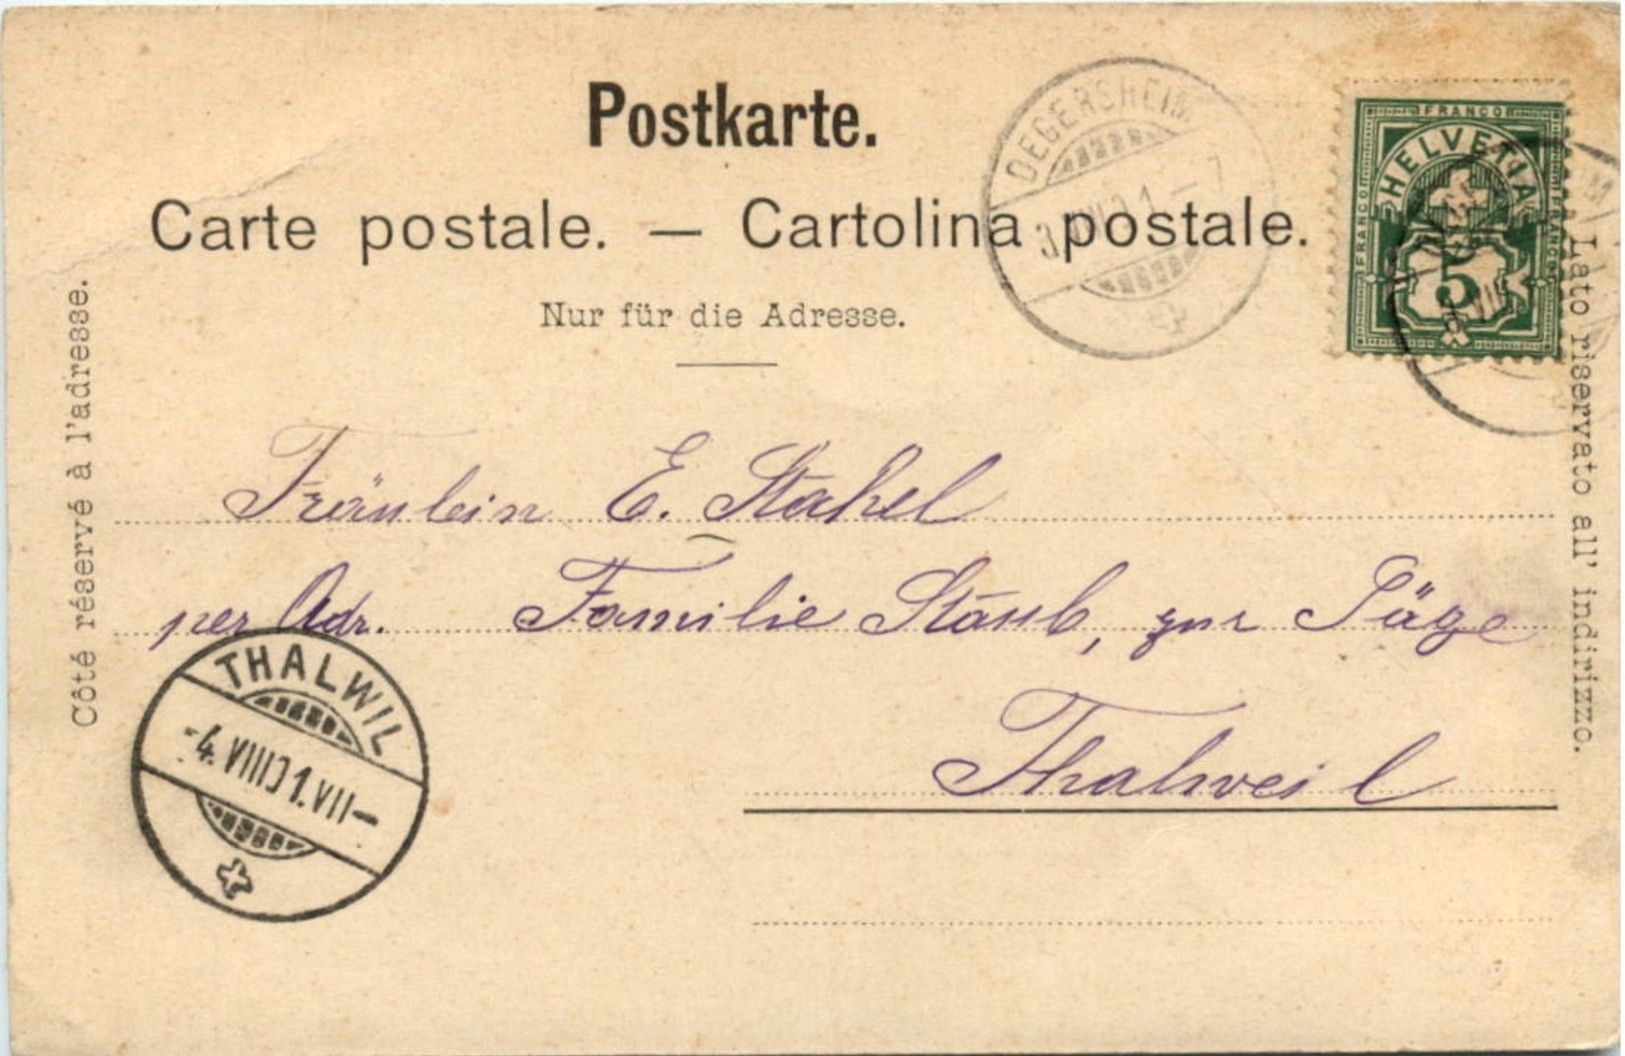 Postkarte.
Carte postale. — Cartolina postale.
Nur für die Adresse.
Côté réservé à l'adresse.
Lato riservato all' indirizzo.
DEGERSHEIM
FRANCO
FRANCO
FRANCO
HELVETIA
5
Fräulein E. Stahel
per Adr. Familie Staub, zur Säge
Thalweil
THALWIL
-4.VIII 01.VII-